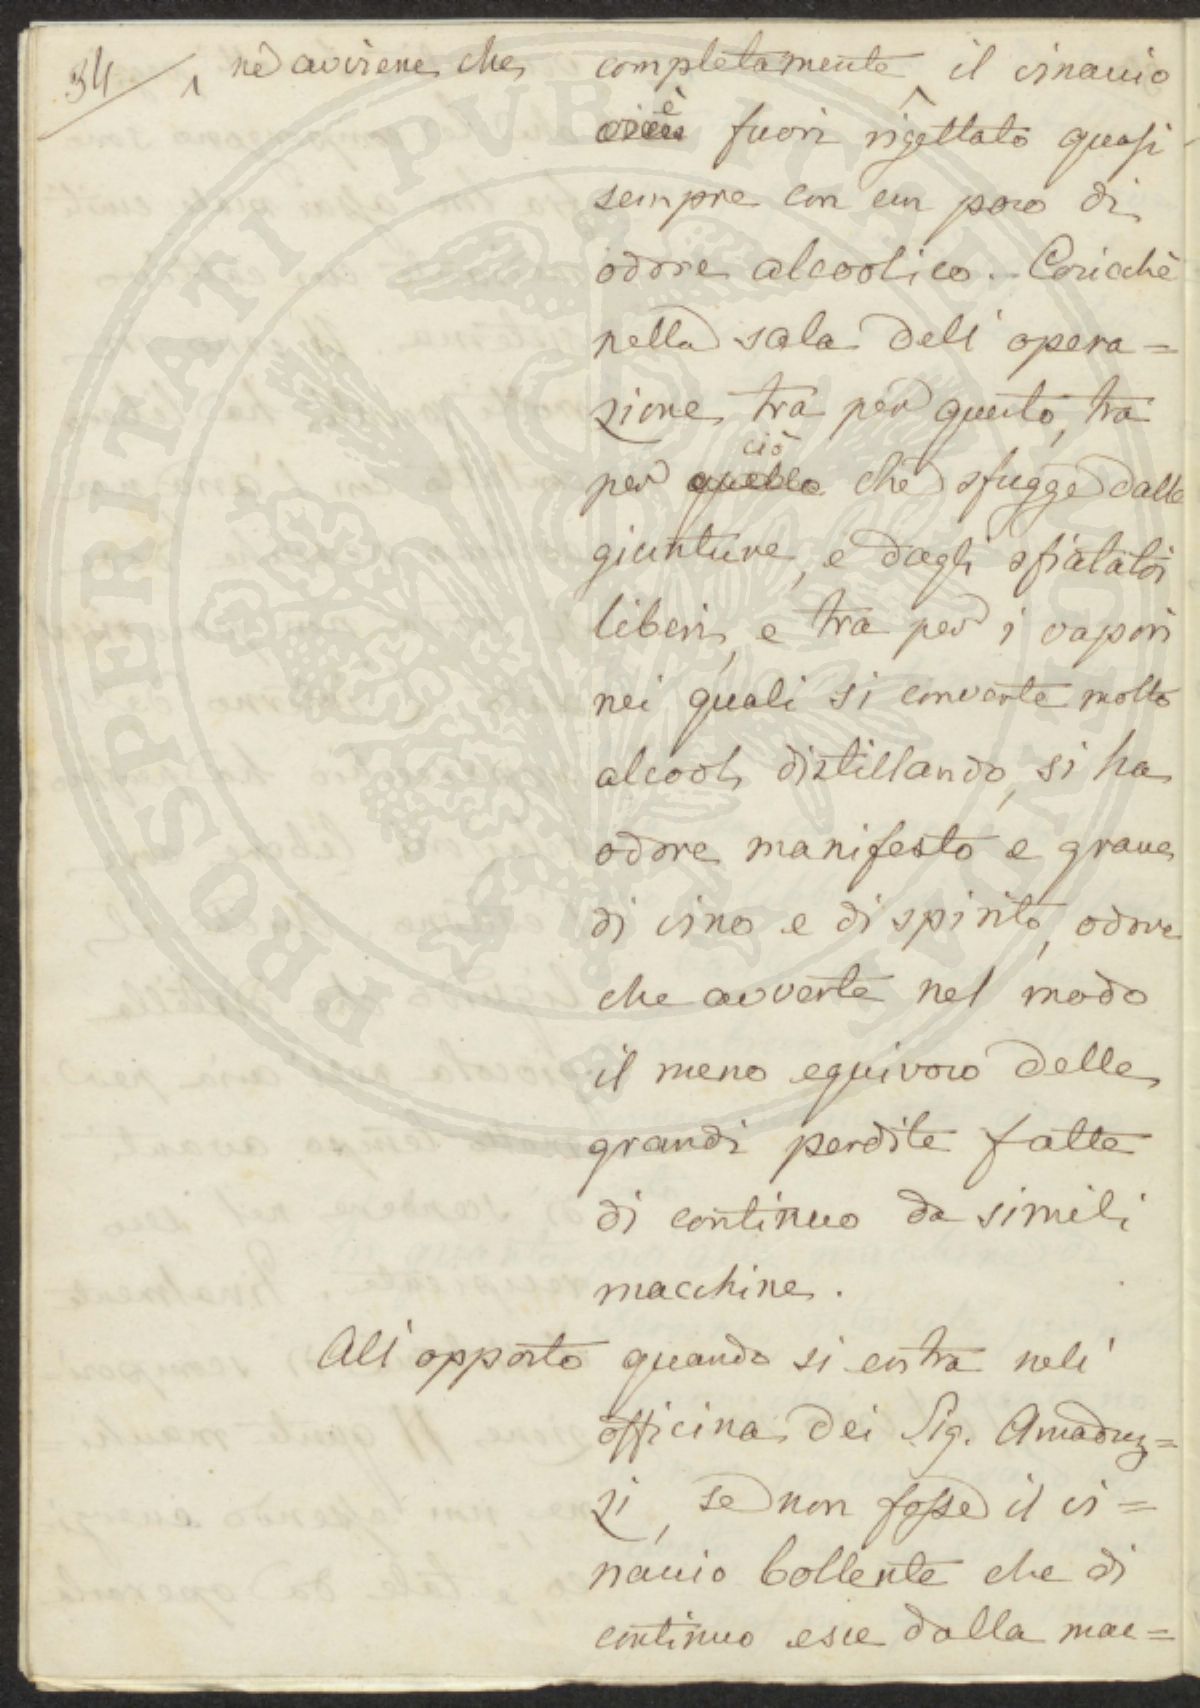 34
ne avviene che
completamente ^ il vinaccio
è
fuori rigettato quasi
sempre con un poco di
odore alcoolico. Cosicchè
nella sala dell' opera=
zione tra per questo, tra
ciò
per quello che sfugge dalle
giunture, e dagli sfiatatoi
liberi, e tra per i vapori
nei quali si converte molto
alcool, distillando, si ha
odore manifesto e grave
di vino e di spirito, odore
che avverte nel modo
il meno equivoco delle
grandi perdite fatte
di continuo da simili
macchine.
All' opposto quando si entra nell'
officina dei Sig. Amaduz=
zi, se non fosse il vi=
naccio bollente che di
continuo esce dalla mac=
PROSPERITATI PUBLICAE AUGENDAE